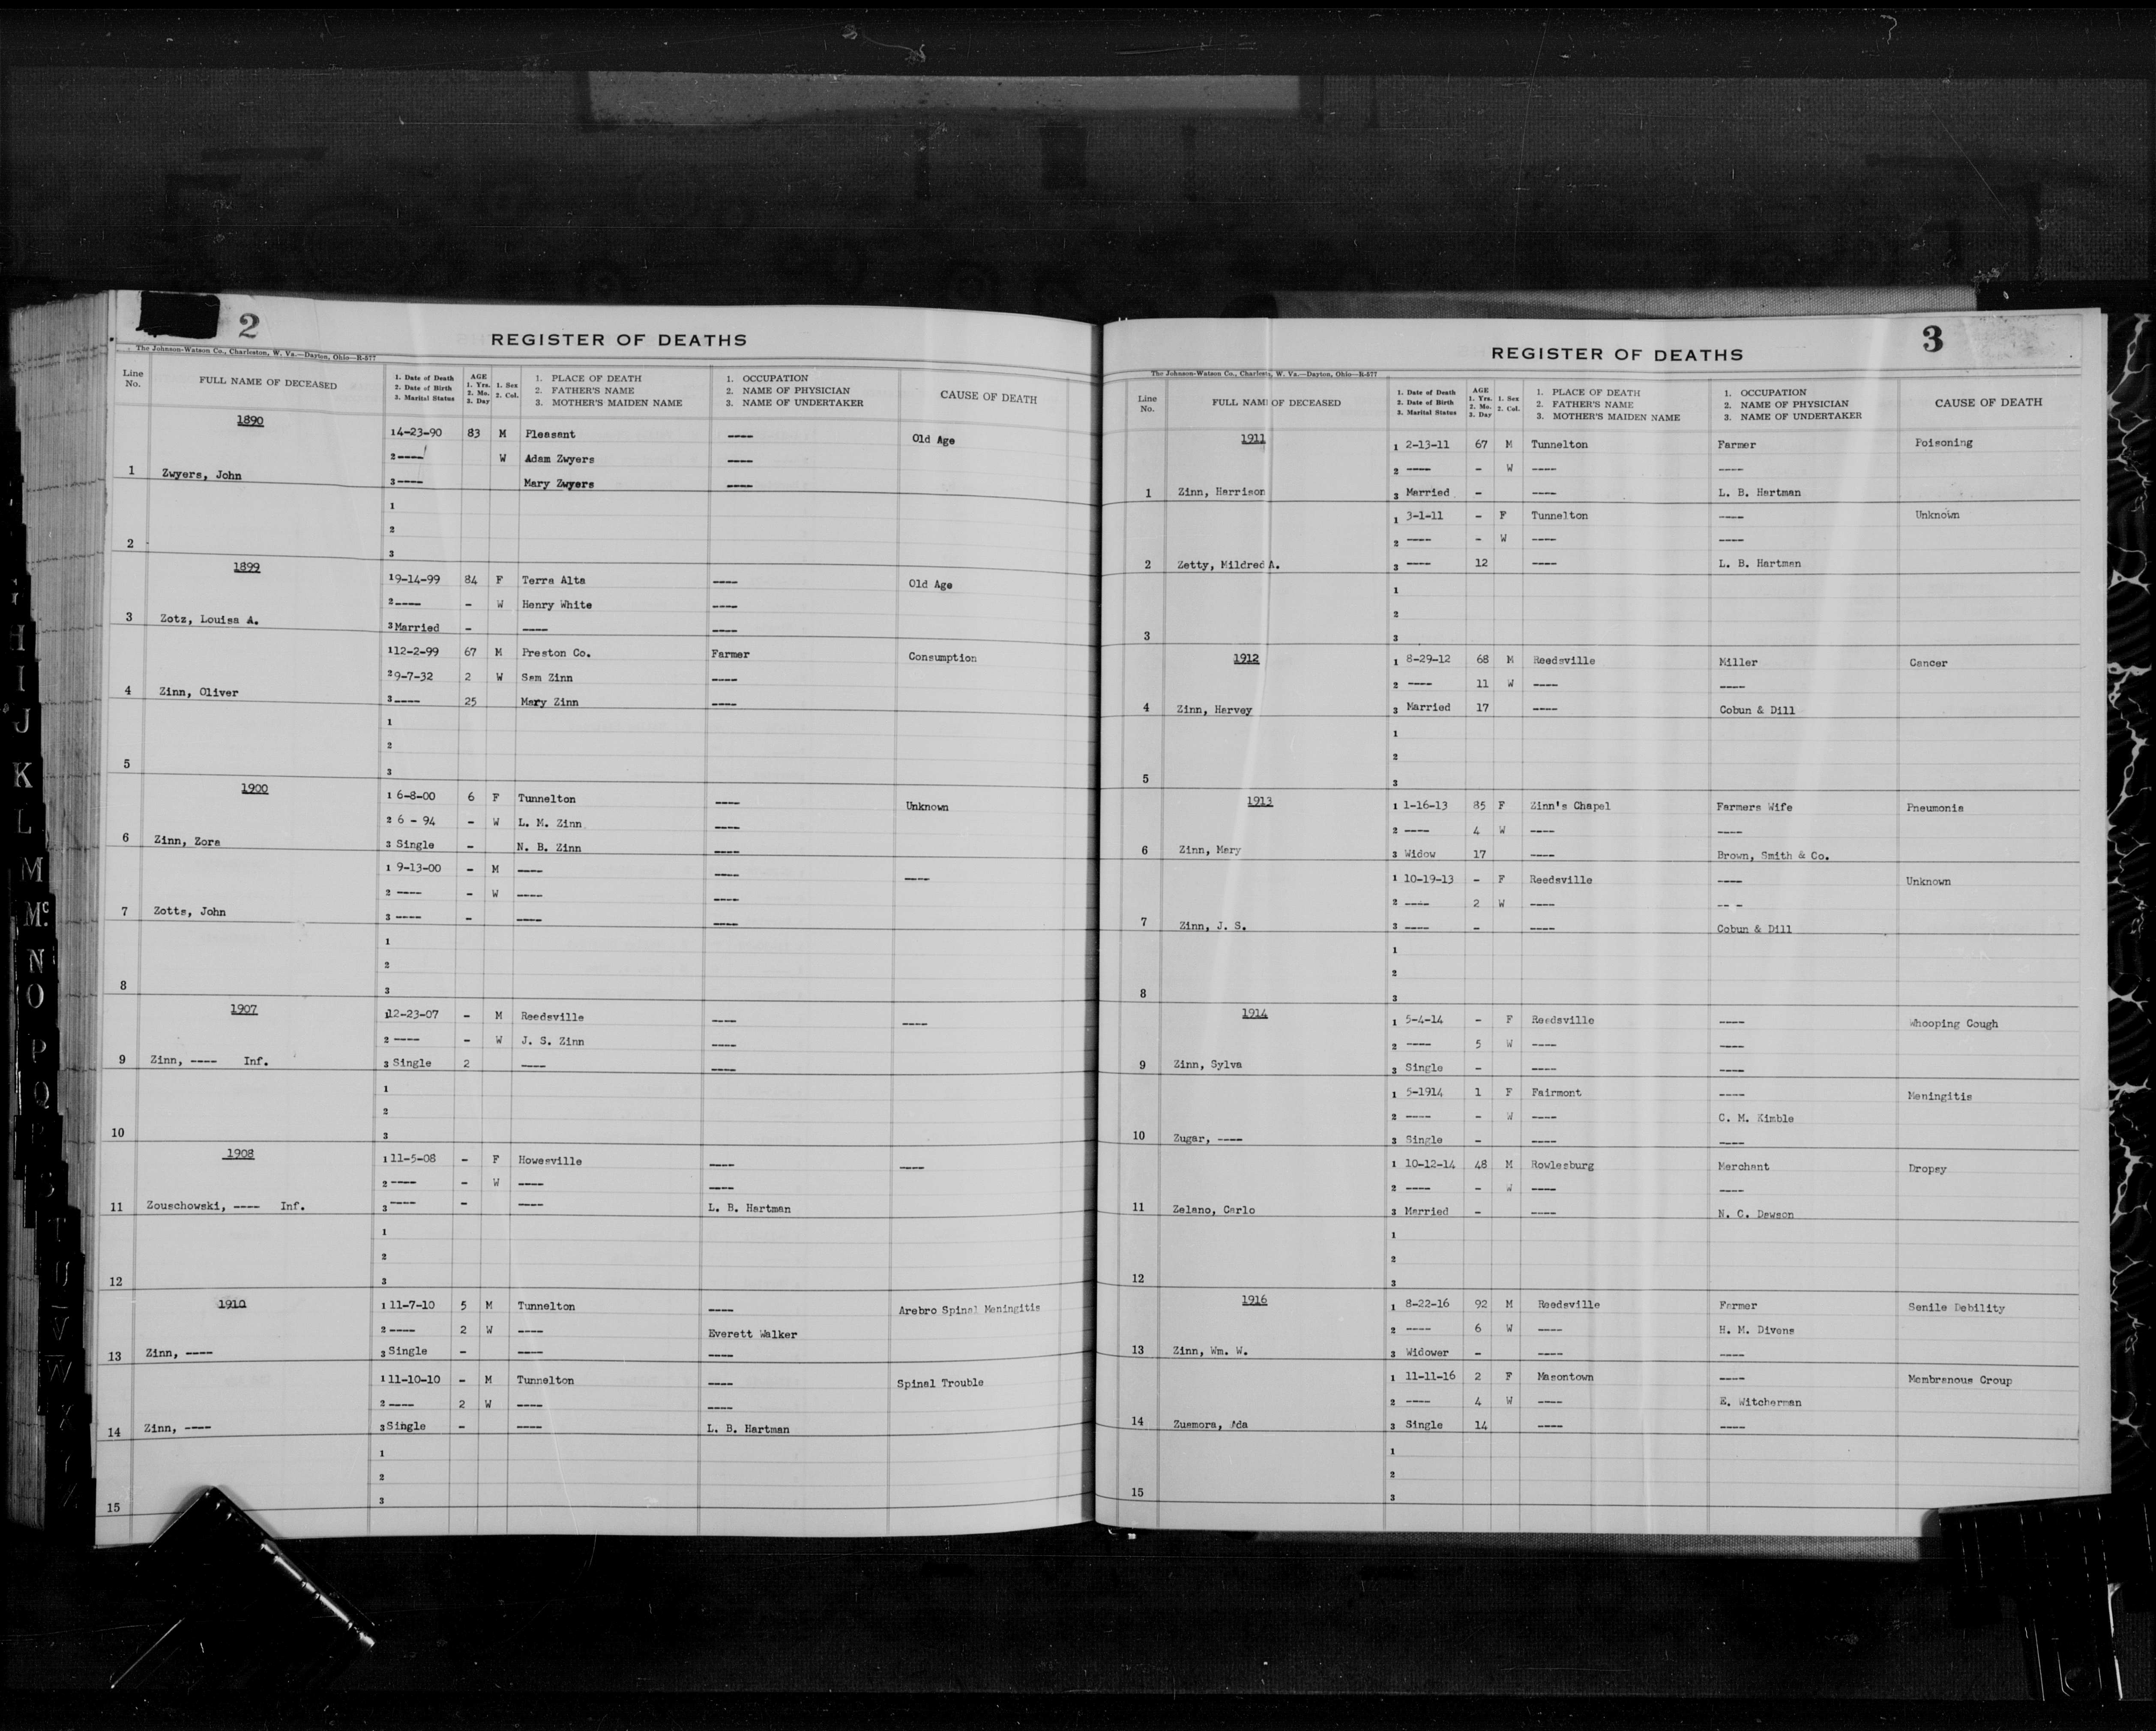 2
REGISTER OF DEATHS
The Johnson-Watson Co., Charleston, W. Va.—Dayton, Ohio—R-577
Line No. FULL NAME OF DECEASED 1. Date of Death 2. Date of Birth 3. Marital Status AGE 1. Yrs. 2. Mo. 3. Day 1. Sex 2. Col. 1. PLACE OF DEATH 2. FATHER'S NAME 3. MOTHER'S MAIDEN NAME 1. OCCUPATION 2. NAME OF PHYSICIAN 3. NAME OF UNDERTAKER CAUSE OF DEATH
1890
1 4-23-90 83 M Pleasant ---- Old Age
2 ---- W Adam Zwyers ----
1 Zwyers, John 3 ---- Mary Zwyers ----
1
2
2 3
1899
1 9-14-99 84 F Terra Alta ---- Old Age
2 ---- - W Henry White ----
3 Zotz, Louisa A. 3 Married - ---- ----
1 12-2-99 67 M Preston Co. Farmer Consumption
2 9-7-32 2 W Sam Zinn ----
4 Zinn, Oliver 3 ---- 25 Mary Zinn ----
1
2
5 3
1900
1 6-8-00 6 F Tunnelton ---- Unknown
2 6 - 94 - W L. M. Zinn ----
6 Zinn, Zora 3 Single - N. B. Zinn ----
1 9-13-00 - M ---- ---- ----
2 ---- - W ---- ----
7 Zotts, John 3 ---- - ---- ----
1
2
8 3
1907
1 12-23-07 - M Reedsville ---- ----
2 ---- - W J. S. Zinn ----
9 Zinn, ---- Inf. 3 Single 2 ---- ----
1
2
10 3
1908
1 11-5-08 - F Howesville ---- ----
2 ---- - W ---- ----
11 Zouschowski, ---- Inf. 3 ---- - ---- L. B. Hartman
1
2
12 3
1910
1 11-7-10 5 M Tunnelton ---- Arebro Spinal Meningitis
2 ---- 2 W ---- Everett Walker
13 Zinn, ---- 3 Single - ---- ----
1 11-10-10 - M Tunnelton ---- Spinal Trouble
2 ---- 2 W ---- ----
14 Zinn, ---- 3 Single - ---- L. B. Hartman
1
2
15 3
3
REGISTER OF DEATHS
The Johnson-Watson Co., Charleston, W. Va.—Dayton, Ohio—R-577
Line No. FULL NAME OF DECEASED 1. Date of Death 2. Date of Birth 3. Marital Status AGE 1. Yrs. 2. Mo. 3. Day 1. Sex 2. Col. 1. PLACE OF DEATH 2. FATHER'S NAME 3. MOTHER'S MAIDEN NAME 1. OCCUPATION 2. NAME OF PHYSICIAN 3. NAME OF UNDERTAKER CAUSE OF DEATH
1911
1 2-13-11 67 M Tunnelton Farmer Poisoning
2 ---- - W ---- ----
1 Zinn, Harrison 3 Married - ---- L. B. Hartman
1 3-1-11 - F Tunnelton ---- Unknown
2 ---- - W ---- ----
2 Zetty, Mildred A. 3 ---- 12 ---- L. B. Hartman
1
2
3 3
1912
1 8-29-12 68 M Reedsville Miller Cancer
2 ---- 11 W ---- ----
4 Zinn, Harvey 3 Married 17 ---- Cobun & Dill
1
2
5 3
1913
1 1-16-13 85 F Zinn's Chapel Farmers Wife Pneumonia
2 ---- 4 W ---- ----
6 Zinn, Mary 3 Widow 17 ---- Brown, Smith & Co.
1 10-19-13 - F Reedsville ---- Unknown
2 ---- 2 W ---- -- -
7 Zinn, J. S. 3 ---- - ---- Cobun & Dill
1
2
8 3
1914
1 5-4-14 - F Reedsville ---- Whooping Cough
2 ---- 5 W ---- ----
9 Zinn, Sylva 3 Single - ---- ----
1 5-1914 1 F Fairmont ---- Meningitis
2 ---- - W ---- C. M. Kimble
10 Zugar, ---- 3 Single - ---- ----
1 10-12-14 48 M Rowlesburg Merchant Dropsy
2 ---- - W ---- ----
11 Zelano, Carlo 3 Married - ---- N. C. Dawson
1
2
12 3
1916
1 8-22-16 92 M Reedsville Farmer Senile Debility
2 ---- 6 W ---- H. M. Divens
13 Zinn, Wm. W. 3 Widower - ---- ----
1 11-11-16 2 F Masontown ---- Membranous Croup
2 ---- 4 W ---- E. Witcherman
14 Zuamora, Ada 3 Single 14 ---- ----
1
2
15 3
H
I
J
K
L
M
Mc
N
O
P
Q
R
S
T
U
V
W
X
Y
Z